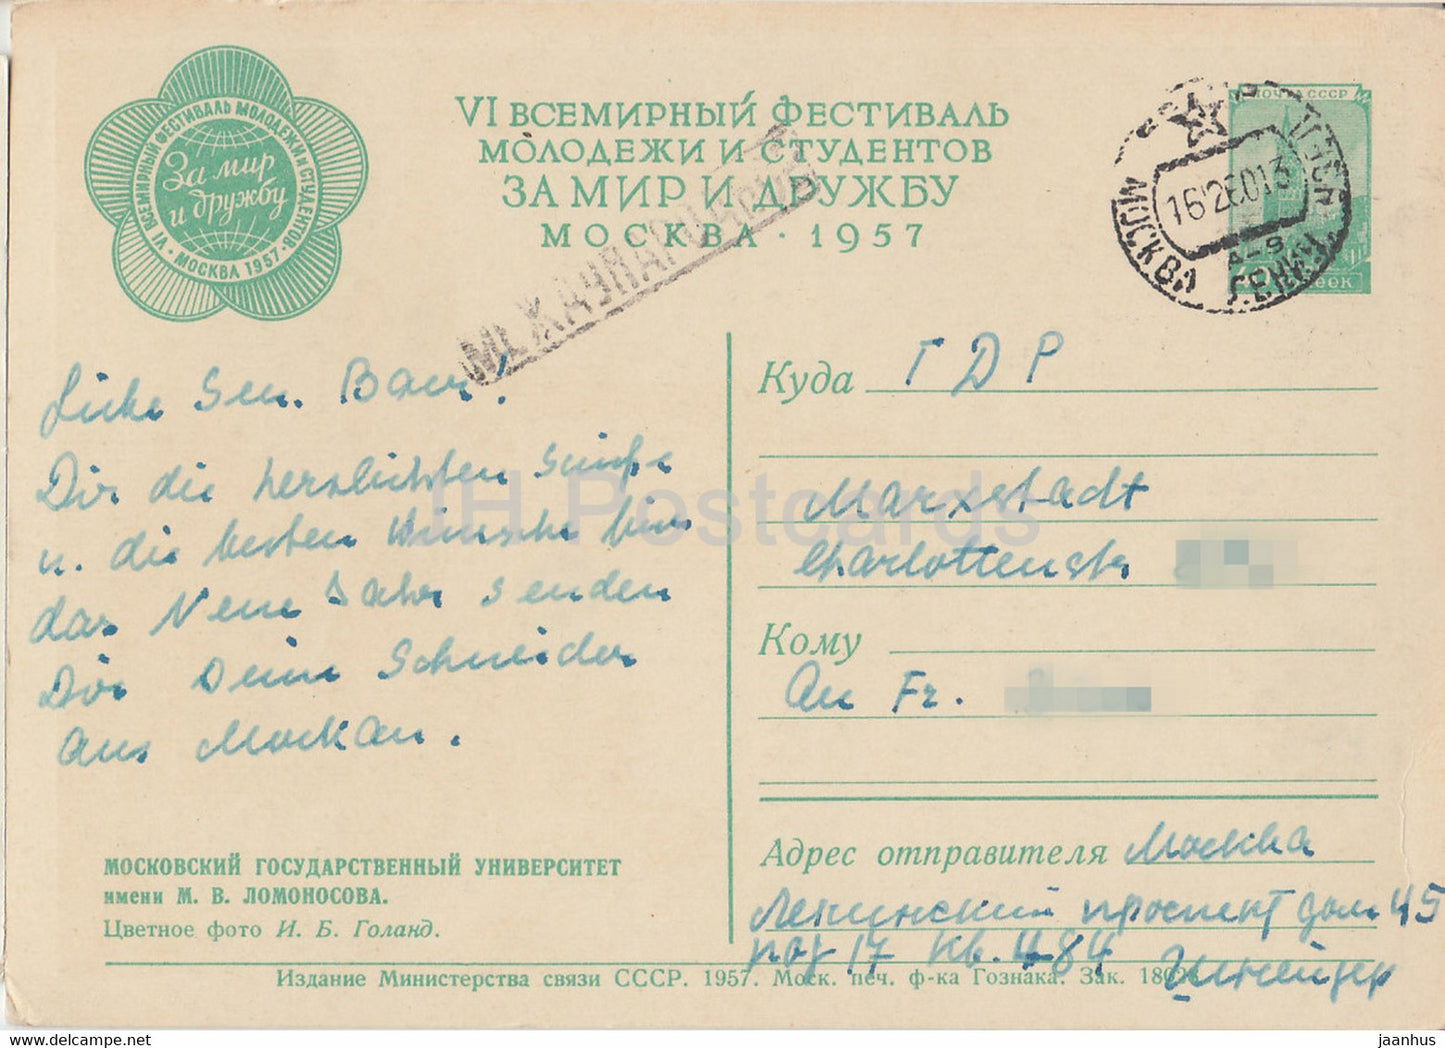 VI ВСЕМИРНЫЙ ФЕСТИВАЛЬ
МОЛОДЕЖИ И СТУДЕНТОВ
ЗА МИР И ДРУЖБУ
МОСКВА · 1957
VI ВСЕМИРНЫЙ ФЕСТИВАЛЬ МОЛОДЕЖИ И СТУДЕНТОВ
За мир
и дружбу
• МОСКВА 1957 •
ПОЧТА СССР
МОСКВА
МЕЖДУНАРОДНОЕ
Dir die herzlichsten
u. die besten Wünsche
das Neue Jahr senden
Dir Deine Schneider
aus Moskau.
Куда ГДР
Marxstadt
Charlottenstr
Кому
An Fr.
Адрес отправителя Москва
Ленинский проспект дом 45
под 17 кв. 484 Шнейдер
МОСКОВСКИЙ ГОСУДАРСТВЕННЫЙ УНИВЕРСИТЕТ
имени М. В. ЛОМОНОСОВА.
Цветное фото И. Б. Голанд.
Издание Министерства связи СССР. 1957. Моск. печ. ф-ка Гознака. Зак.
JH Postcards
Illustrator: jaanhus - www.delcampe.net